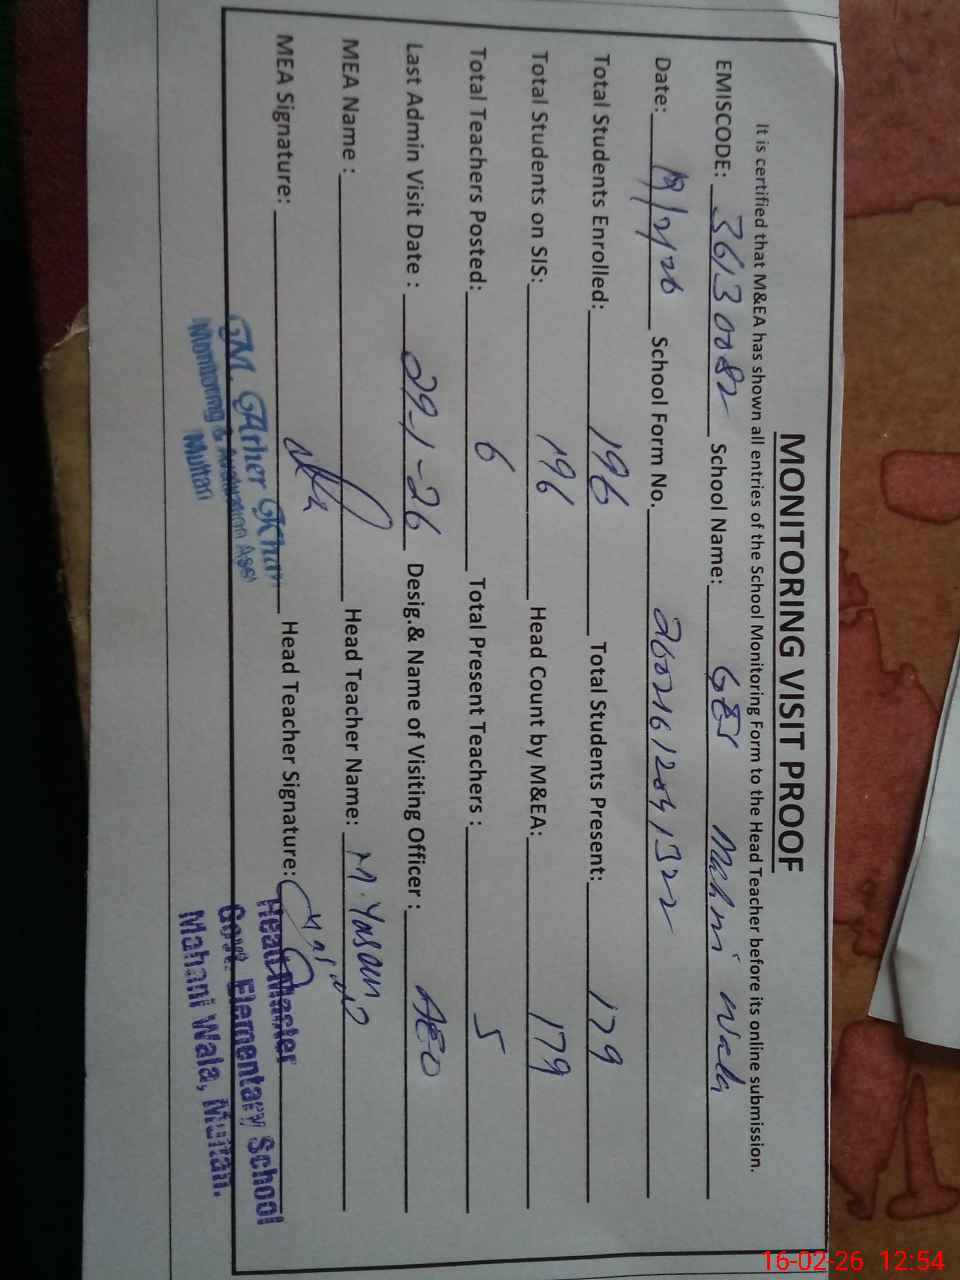 MONITORING VISIT PROOF
It is certified that M&EA has shown all entries of the School Monitoring Form to the Head Teacher before its online submission.
EMISCODE: 36130082 School Name: GES Mehni Wala
Date: /2/26 School Form No. 26021612041322
Total Students Enrolled: 196 Total Students Present: 179
Total Students on SIS: 196 Head Count by M&EA: 179
Total Teachers Posted: 6 Total Present Teachers : 5
Last Admin Visit Date : 29-1-26 Desig.& Name of Visiting Officer : AEO
MEA Name : Head Teacher Name: M. Yasan
MEA Signature: Head Teacher Signature:
M. Ather Khan
Monitoring & Evaluation Ass
Multan
Head Master
Govt. Elementary School
Mahani Wala, Multan.
16-02-26 12:54